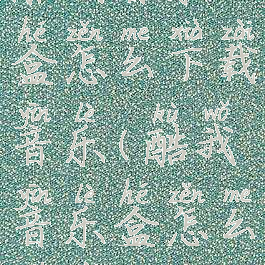 hé zěn me xià zǎi
盒怎么下载
yīn lè kù wǒ
音乐(酷我
yīn lè hé zěn me
音乐盒怎么